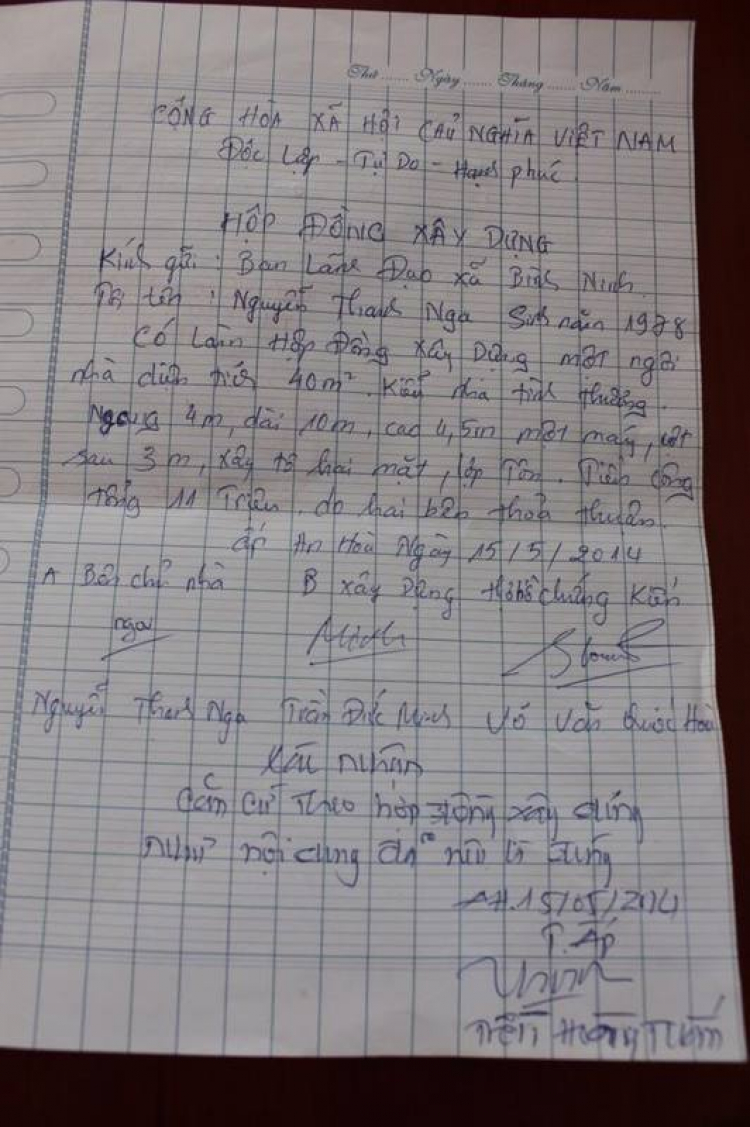 Thứ ...... Ngày ...... Tháng ...... Năm .........
CỘNG HÒA XÃ HỘI CHỦ NGHĨA VIỆT NAM
Độc Lập - Tự Do - Hạnh phúc
HỘP ĐỒNG XÂY DỰNG
Kính gửi : Ban Lãnh Đạo xã Bình Ninh
Tôi tên : Nguyễn Thanh Nga Sinh năm 1978
Có Làm Hợp Đồng xây Dựng một ngôi
nhà diện tích 40m². Kiểu nhà tình thương.
Ngang 4m, dài 10m, cao 4,5m một mái, cột
sau 3m, xây tô hai mặt, lợp Tôn. Tiền công
tổng 11 Triệu. do hai bên thoả thuận.
ấp An Hoà Ngày 15/5/2014
A Bên chủ nhà B xây Dựng chứng Kiến
nga
Nguyễn Thanh Nga Trần Đức Minh Võ Văn Quốc Hoà
Xác nhận
Căn cứ Theo hợp đồng xây dựng
như nội dung đã nêu là đúng
AH.15/05/2014
T. Ấp
Hoàng